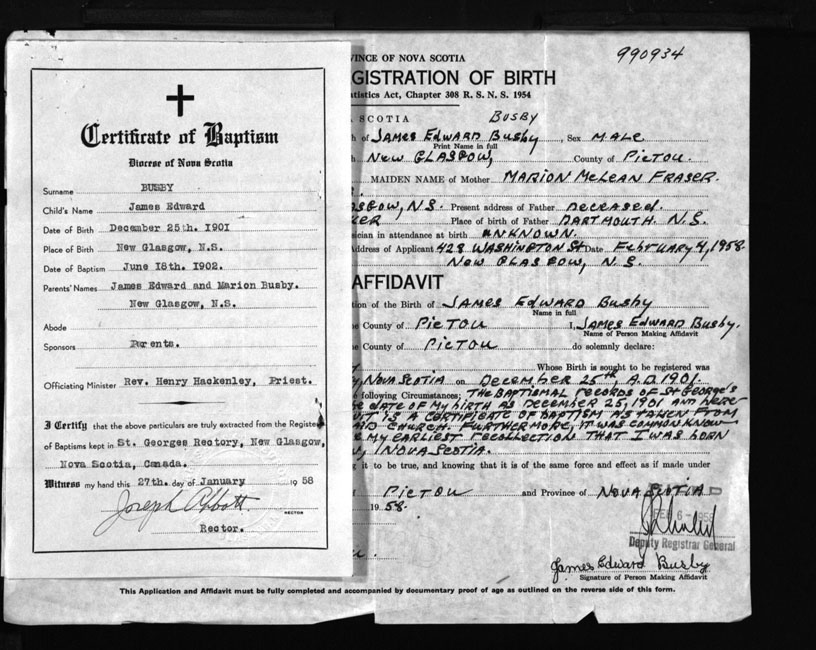 990934
Certificate of Baptism
Diocese of Nova Scotia
Surname BUSBY
Child's Name James Edward
Date of Birth December 25th. 1901
Place of Birth New Glasgow, N.S.
Date of Baptism June 18th. 1902.
Parents' Names James Edward and Marion Busby.
New Glasgow, N.S.
Abode
Sponsors Parents.
Officiating Minister Rev. Henry Hackenley, Priest.
I Certify that the above particulars are truly extracted from the Register
of Baptisms kept in St. Georges Rectory, New Glasgow,
Nova Scotia, Canada.
Witness my hand this 27th. day of January 1958
Joseph Abbott
RECTOR
Rector.
VINCE OF NOVA SCOTIA
GISTRATION OF BIRTH
atistics Act, Chapter 308 R. S. N. S. 1954
SCOTIA BUSBY
of JAMES EDWARD BUSBY, Sex MALE
Print Name in full
NEW GLASGOW, County of PICTOU.
MAIDEN NAME of Mother MARION MCLEAN FRASER.
SGOW, N.S. Present address of Father DECEASED.
Place of birth of Father DARTMOUTH. N.S.
sician in attendance at birth UNKNOWN.
ddress of Applicant 428 WASHINGTON St Date FEBRUARY 4, 1958.
NEW GLASGOW, N.S.
AFFIDAVIT
tion of the Birth of JAMES EDWARD BUSBY
Name in full
e County of PICTOU I, JAMES EDWARD BUSBY.
Name of Person Making Affidavit
e County of PICTOU do solemnly declare:
Whose Birth is sought to be registered was
NOVA SCOTIA on DECEMBER 25th, A.D. 1901
following Circumstances; THE BAPTISMAL RECORDS OF ST GEORGE'S
DATE OF MY BIRTH AS DECEMBER 25, 1901 AND HERE
IT IS A CERTIFICATE OF BAPTISM AS TAKEN FROM
CHURCH. FURTHERMORE, IT WAS COMMON KNOW
MY EARLIEST RECOLLECTION THAT I WAS BORN
NOVA SCOTIA.
g it to be true, and knowing that it is of the same force and effect as if made under
PICTOU and Province of NOVA SCOTIA
1958.
FEB 6 - 1958
Deputy Registrar General
James Edward Busby
Signature of Person Making Affidavit
This Application and Affidavit must be fully completed and accompanied by documentary proof of age as outlined on the reverse side of this form.